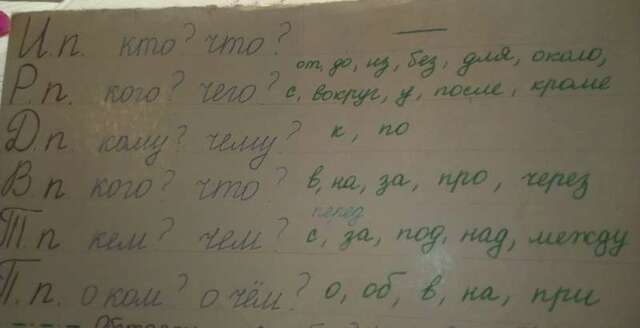 И.п. кто? что? —
от, до, из, без, для, около,
Р.п. кого? чего? с, вокруг, у, после, кроме
Д.п. кому? чему? к, по
В.п. кого? что? в, на, за, про, через
перед
Т.п. кем? чем? с, за, под, над, между
П.п. о ком? о чём? о, об, в, на, при